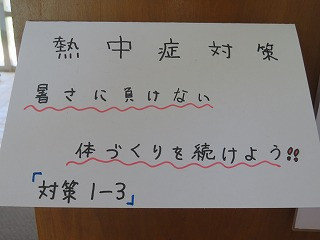 熱中症対策
暑さに負けない
体づくりを続けよう!!
「対策 1-3」